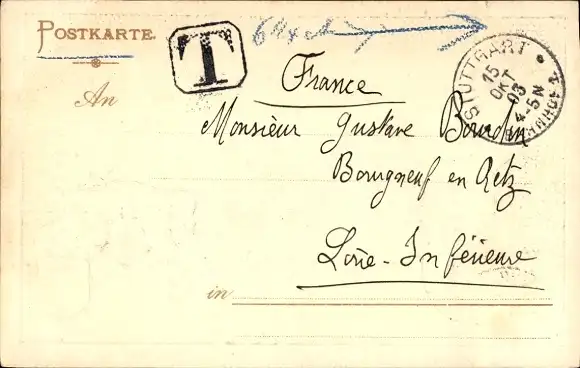 POSTKARTE.
T
STUTTGART
15 OKT 03
4-5N
France
An
Monsieur Gustave Bourdin
Bourgneuf en Retz
Loire-Inférieure
in